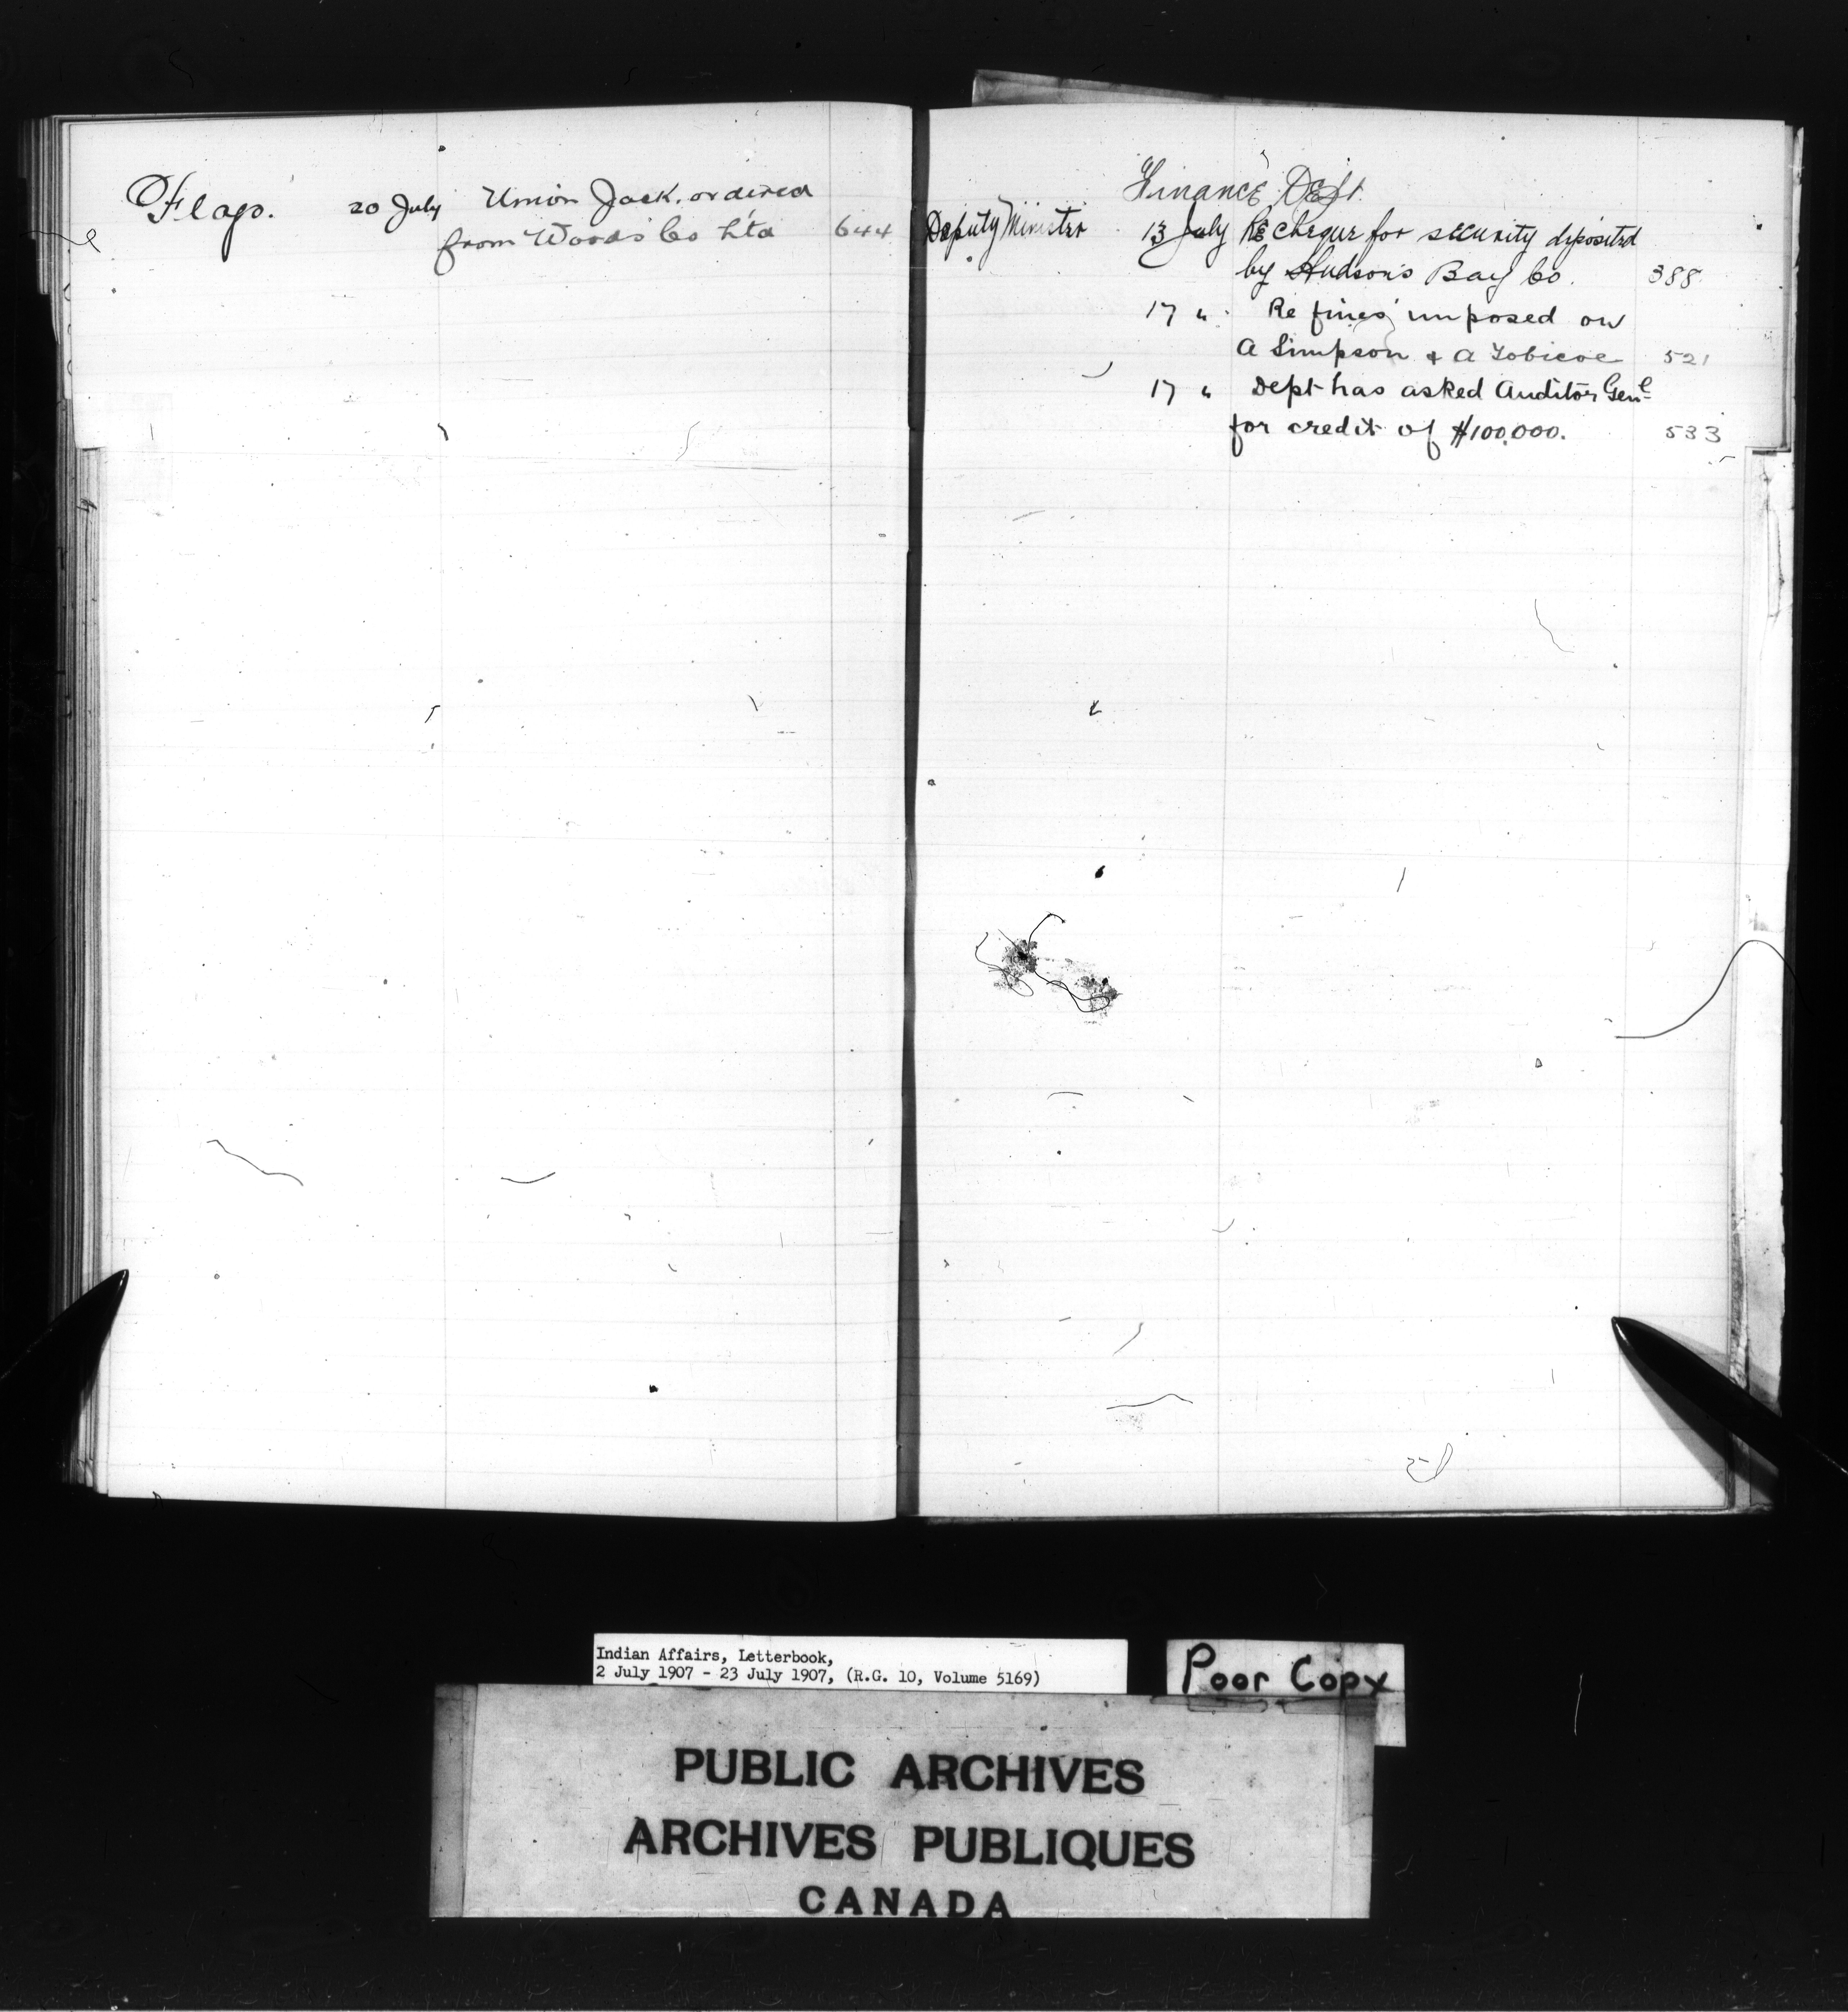 Flags. 20 July Union Jack. ordered
from Woods Co Ltd 644
Finance Dept.
Deputy Minister 13 July Re Cheque for security deposited
by Hudson's Bay Co. 388
17 " Re fines imposed on
A Simpson & A Tobicoe 521
17 " Dept has asked Auditor Genl
for credit of $100,000. 533
Indian Affairs, Letterbook,
2 July 1907 - 23 July 1907, (R.G. 10, Volume 5169)
Poor Copy
PUBLIC ARCHIVES
ARCHIVES PUBLIQUES
CANADA